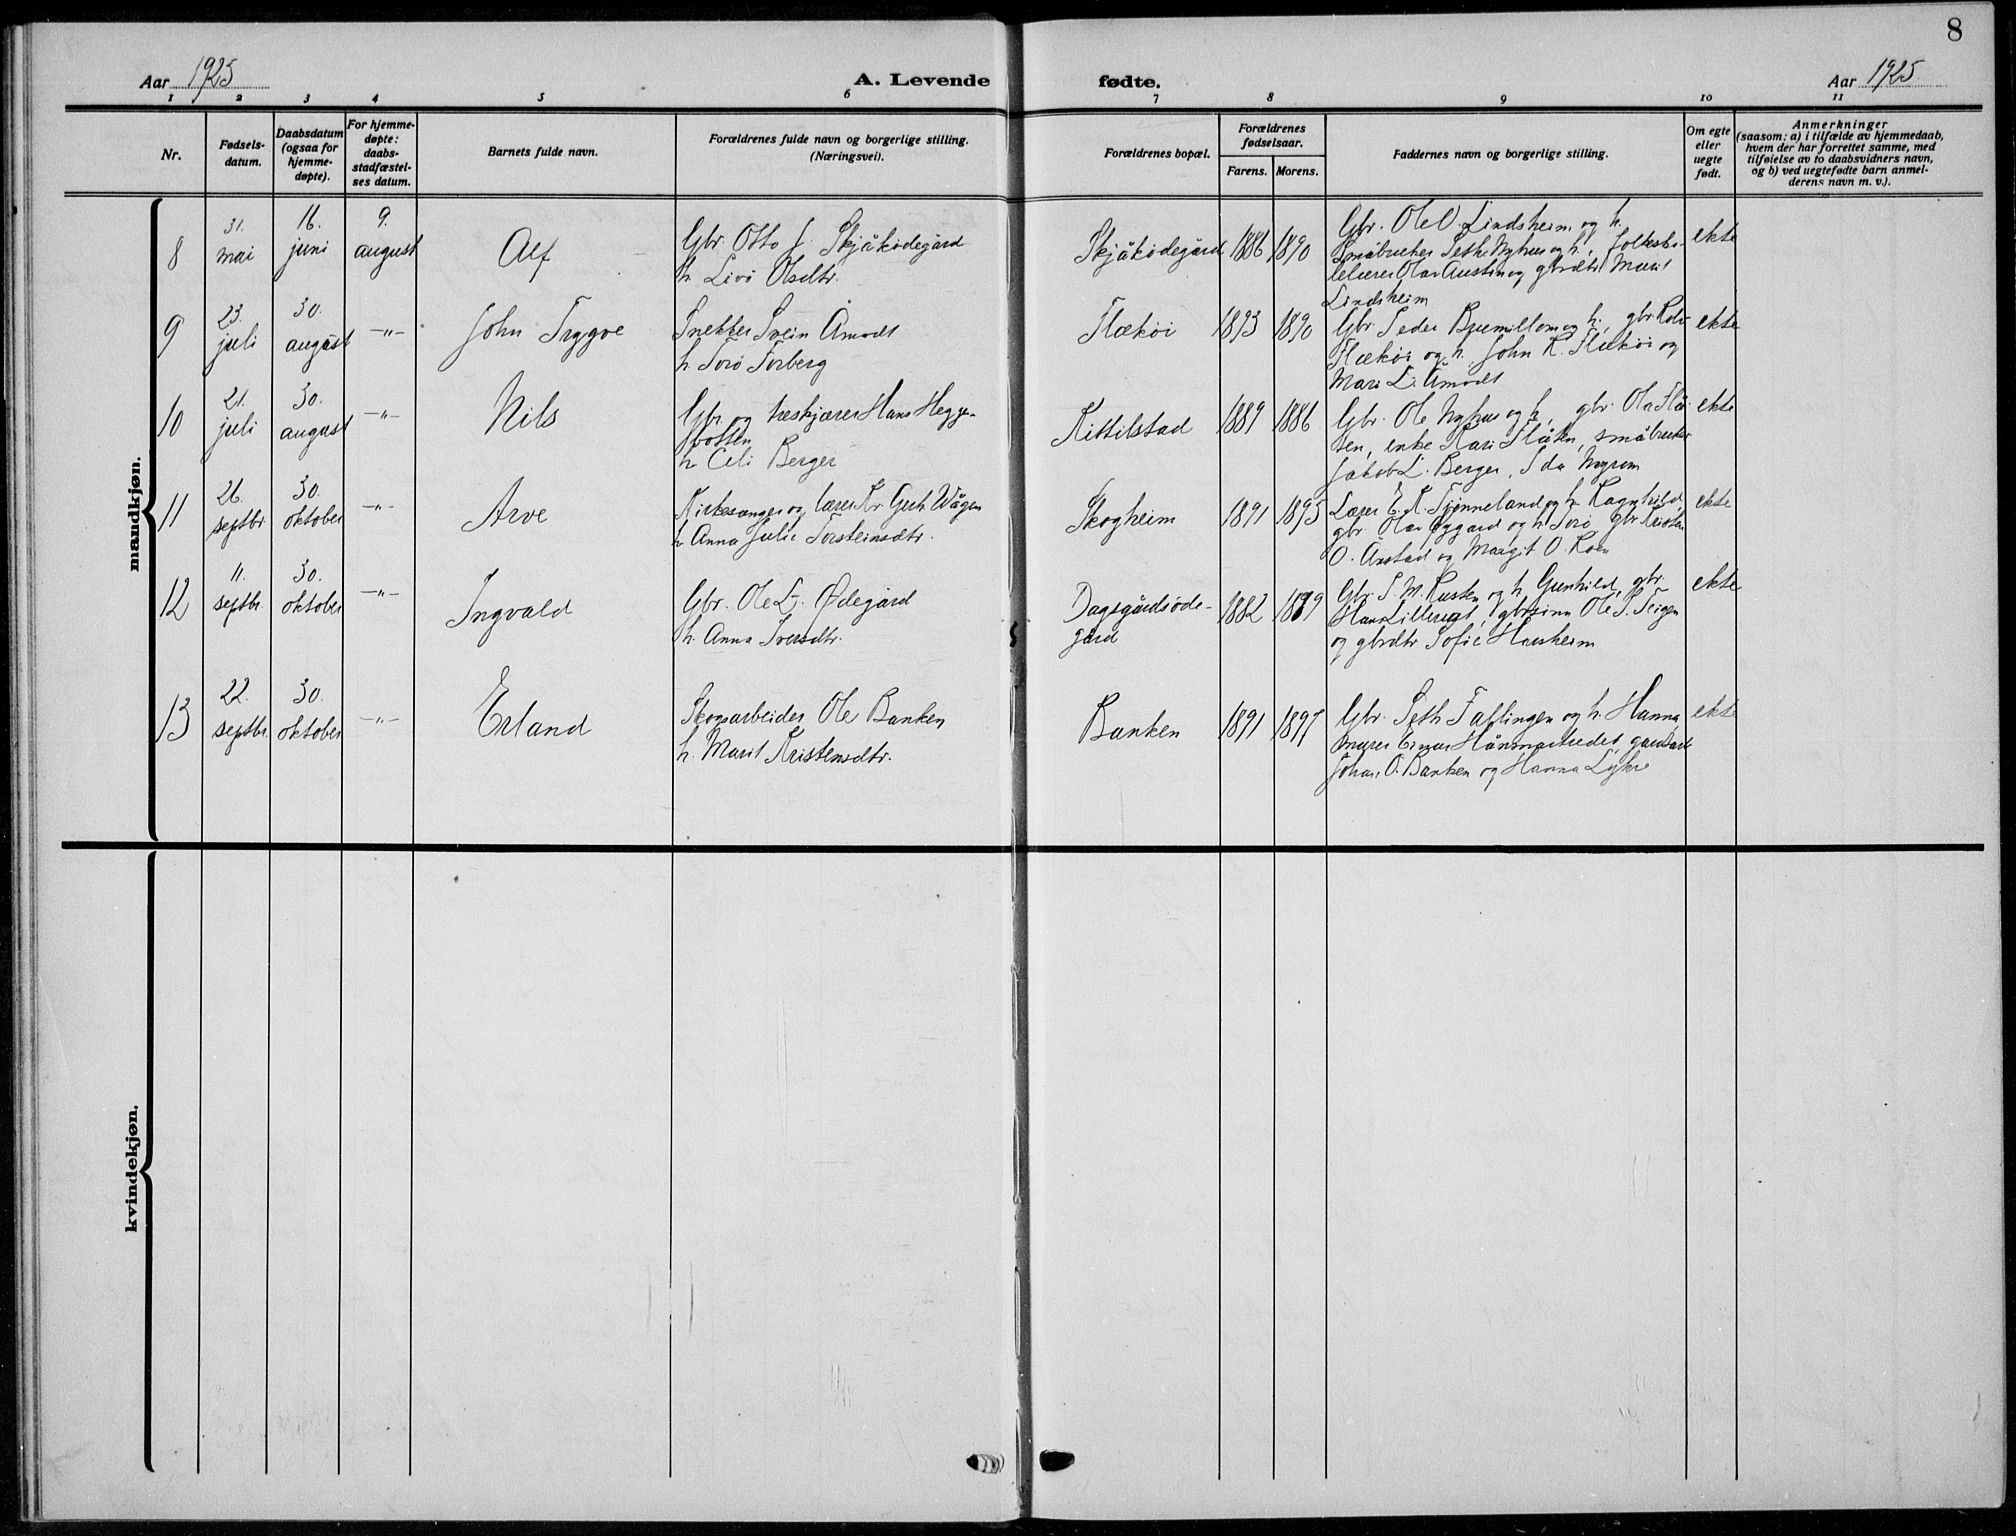 8
Aar 1925
A. Levende
fødte.
Aar 1925
1 2 3 4 5 6 7 8 9 10 11
Nr.
Fødsels-
datum.
Daabsdatum
(ogsaa for
hjemme-
døpte).
For hjemme-
døpte:
daabs-
stadfæstel-
ses datum.
Barnets fulde navn.
Forældrenes fulde navn og borgerlige stilling.
(Næringsvei).
Forældrenes bopæl.
Forældrenes
fødselsaar.
Farens. Morens.
Faddernes navn og borgerlige stilling.
Om egte
eller
uegte
født.
Anmerkninger
(saasom: a) i tilfælde av hjemmedaab,
hvem der har forrettet samme, med
tilføielse av to daabsvidners navn,
og b) ved uegtefødte barn anmel-
derens navn m. v.).
mandkjøn.
8
31.
mai
16.
juni
9.
august
Alf
Gbr. Otto J. Skjåkødegård
h. Livø Olsdtr.
Skjåkødegård
1886
1890
Gbr. Ole O. Lindsheim og h.
Småbruker Seth Nyhus og h., folkehø-
lelærer Olav Austin og gbrdtr. Marit
Lindsheim
ekte
9
23.
juli
30.
august
-"-
John Tryggve
Snekker Svein Åmodt
h. Torø Torberg
Flækøi
1893
1890
Gbr. Peder Bjumillom og h., gbr. Kolv
Flækøi og h. John K. Flækøi og
Mari L. Åmodt
ekte
10
21.
juli
30.
august
-"-
Nils
Gbr. og træskjærer Hans Hegge-
botten
h. Celi Berger
Kittilstad
1889
1886
Gbr. Ole Nyhus og h., gbr. Ola Flå-
ten, enke Kari Flåten, småbruker
Jakob L. Berger, Ida Nyrum
ekte
11
26.
septbr
30.
oktober
-"-
Arve
Kirkesanger og lærer Kr. Gerh. Vågen
h. Anna Julie Torsteinsdtr.
Skogheim
1891
1895
Lærer E. K. Tjønneland og h. Ragnhild,
gbr. Olav Øygard og h. Torø, gbr. Kristen
O. Ånstad og Margit O. Roen
ekte
12
11.
septbr.
30.
oktober
-"-
Ingvald
Gbr. Ole L. Ødegård
h. Anna Iversdtr.
Dagsgårdsøde-
gård
1882
1889
Gbr. S. M. Kusten og h. Gunhild, gbr.
Hans Lillerust, gbrsønn Ole P. Teigen
og gbrdtr Sofie Harsheim
ekte
13
22.
septbr.
30.
oktober
-"-
Erland
Skogsarbeider Ole Banken
h. Marit Kristensdtr.
Banken
1891
1897
Gbr. Seth Taflingen og h. Hanna
murer Ernar Hånmastuedet, gardsarb
Johan O. Banken og Hanna Lykre
ekte
kvindekjøn.